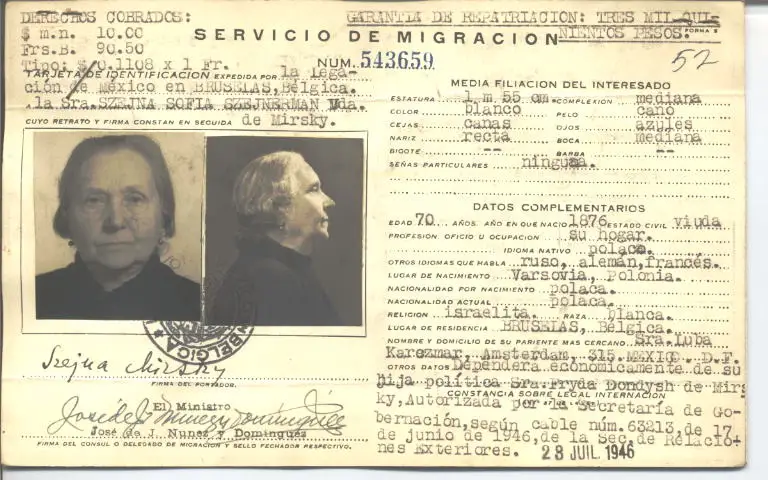 DERECHOS COBRADOS:
$ m.n. 10.00
Frs.B. 90.50
Tipo: $ 0.1108 x 1 Fr.
GARANTIA DE REPATRIACION: TRES MIL QUI-
NIENTOS PESOS. FORMA 5
SERVICIO DE MIGRACION
NUM. 543659
52
TARJETA DE IDENTIFICACION EXPEDIDA POR la lega-
ción de México en BRUSELAS, Bélgica.
a la Sra. SZEJNA SOFIA SZEJNERMAN Vda.
CUYO RETRATO Y FIRMA CONSTAN EN SEGUIDA de Mirsky.
BELGICA
Szejna Mirsky
FIRMA DEL PORTADOR.
El Ministro
José de J. Nunez y Dominguez
José de J. Nunez y Dominguez
FIRMA DEL CONSUL O DELEGADO DE MIGRACION Y SELLO FECHADOR RESPECTIVO.
MEDIA FILIACION DEL INTERESADO
ESTATURA 1 m 55 cm COMPLEXION mediana
COLOR blanco PELO cano
CEJAS canas OJOS azules
NARIZ recta BOCA mediana
BIGOTE -- BARBA --
SEÑAS PARTICULARES ninguna.
DATOS COMPLEMENTARIOS
EDAD 70 AÑOS. AÑO EN QUE NACIO 1876 ESTADO CIVIL viuda
PROFESION, OFICIO U OCUPACION su hogar.
IDIOMA NATIVO polaco.
OTROS IDIOMAS QUE HABLA ruso, alemán, francés.
LUGAR DE NACIMIENTO Varsovia, Polonia.
NACIONALIDAD POR NACIMIENTO polaca.
NACIONALIDAD ACTUAL polaca.
RELIGION israelita. RAZA blanca.
LUGAR DE RESIDENCIA BRUSELAS, Bélgica.
NOMBRE Y DOMICILIO DE SU PARIENTE MAS CERCANO Sra. Luba
Karczmar, Amsterdam, 315. MEXICO. D.F.
OTROS DATOS Dependera económicamente de su
hija política Sra. Fryda Dondysh de Mirs
CONSTANCIA SOBRE LEGAL INTERNACION
ky, Autorizada por la Secretaría de Go-
bernación, según cable núm. 63213, de 17
de junio de 1946, de la Sec. de Relacio-
nes Exteriores. 23 JUIL. 1946